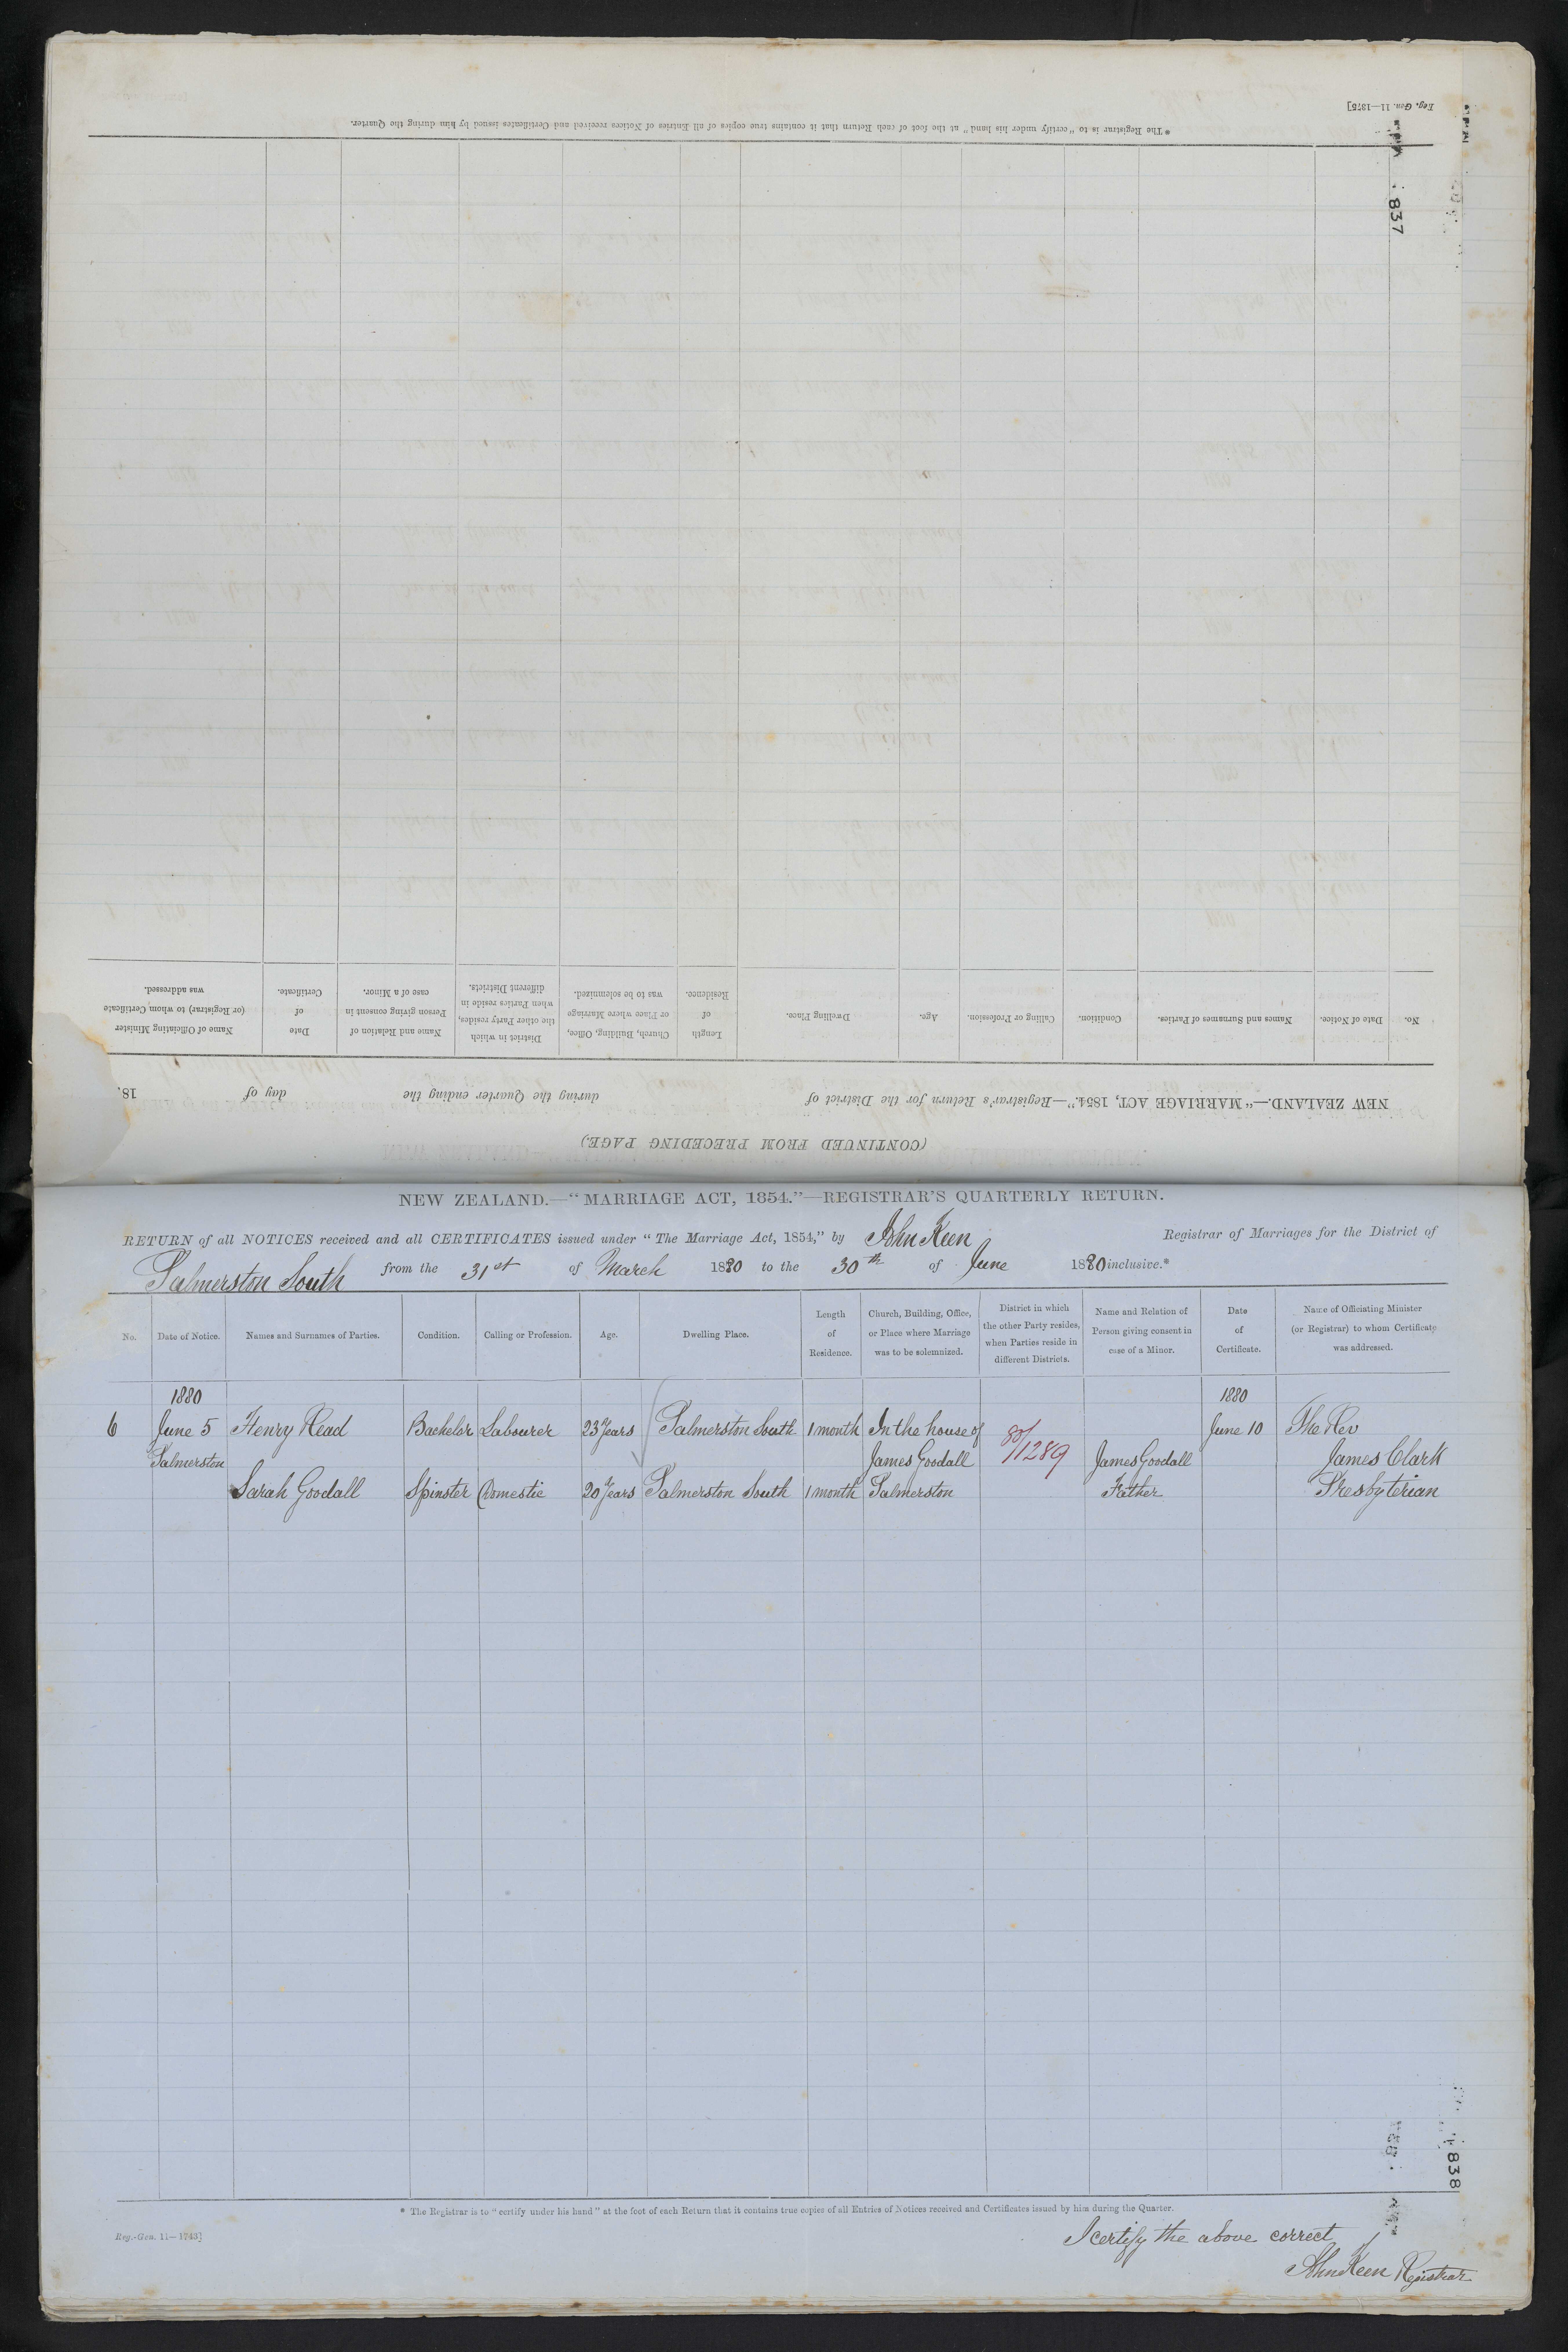 Reg. Gen. 11—1375]
* The Registrar is to "certify under his hand" at the foot of each Return that it contains true copies of all Entries of Notices received and Certificates issued by him during the Quarter.
837
(CONTINUED FROM PRECEDING PAGE)
NEW ZEALAND.—"MARRIAGE ACT, 1854."—Registrar's Return for the District of during the Quarter ending the day of 18
No.
Date of Notice.
Names and Surnames of Parties.
Condition.
Calling or Profession.
Age.
Dwelling Place.
Length
of
Residence.
Church, Building, Office,
or Place where Marriage
was to be solemnized.
District in which
the other Party resides,
when Parties reside in
different Districts.
Name and Relation of
Person giving consent in
case of a Minor.
Date
of
Certificate.
Name of Officiating Minister
(or Registrar) to whom Certificate
was addressed.
NEW ZEALAND.—"MARRIAGE ACT, 1854."—REGISTRAR'S QUARTERLY RETURN.
RETURN of all NOTICES received and all CERTIFICATES issued under "The Marriage Act, 1854," by John Keen Registrar of Marriages for the District of
Palmerston South from the 31st of March 1880 to the 30th of June 1880 inclusive.*
No.
Date of Notice.
Names and Surnames of Parties.
Condition.
Calling or Profession.
Age.
Dwelling Place.
Length
of
Residence.
Church, Building, Office,
or Place where Marriage
was to be solemnized.
District in which
the other Party resides,
when Parties reside in
different Districts.
Name and Relation of
Person giving consent in
case of a Minor.
Date
of
Certificate.
Name of Officiating Minister
(or Registrar) to whom Certificate
was addressed.
1880 1880
6 June 5 Henry Read Bachelor Labourer 23 Years Palmerston South 1 month In the house of 80/1289 June 10 The Rev
Palmerston James Goodall James Goodall James Clark
Sarah Goodall Spinster Domestic 20 Years Palmerston South 1 month Palmerston Father Presbyterian
838
* The Registrar is to "certify under his hand" at the foot of each Return that it contains true copies of all Entries of Notices received and Certificates issued by him during the Quarter.
Reg.-Gen. 11—1743]
I certify the above correct
John Keen Registrar